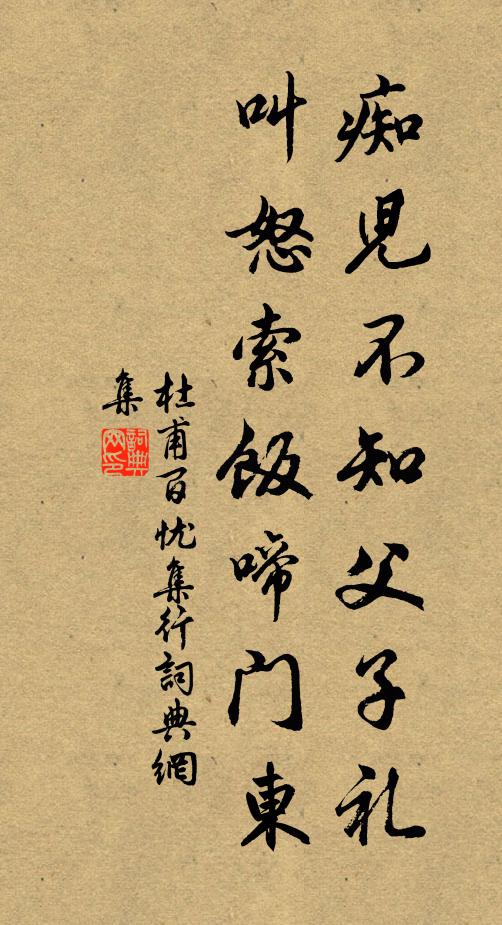 痴児不知父子礼
叫怒索飯啼门東
杜甫百忧集行詞典網
集
詞典
网印